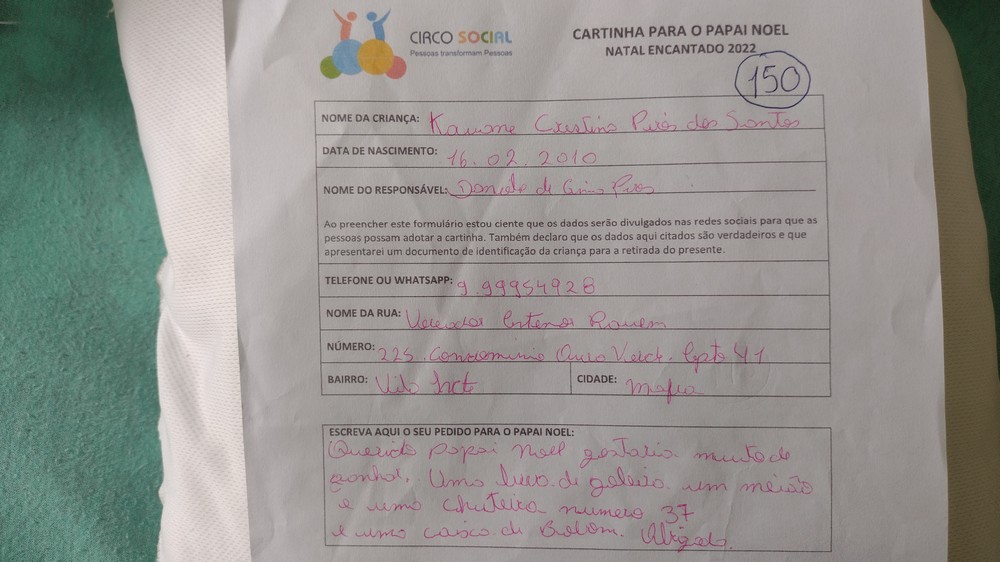 CIRCO SOCIAL
Pessoas transformam Pessoas
CARTINHA PARA O PAPAI NOEL
NATAL ENCANTADO 2022
150
NOME DA CRIANÇA: Kauane Cristina Pires dos Santos
DATA DE NASCIMENTO: 16.02.2010
NOME DO RESPONSÁVEL: Daniele de Pires
Ao preencher este formulário estou ciente que os dados serão divulgados nas redes sociais para que as
pessoas possam adotar a cartinha. Também declaro que os dados aqui citados são verdadeiros e que
apresentarei um documento de identificação da criança para a retirada do presente.
TELEFONE OU WHATSAPP: 9.99954928
NOME DA RUA: Vereador
NÚMERO: 225. Condominio Ouro Verde. Apto 41
BAIRRO: Vila CIDADE: Mafra
ESCREVA AQUI O SEU PEDIDO PARA O PAPAI NOEL:
Querido papai noel gostaria muito de
ganhar. Uma luva de goleiro um meião
e uma chuteira numero 37
e uma caixa de Bombom. Obrigado.